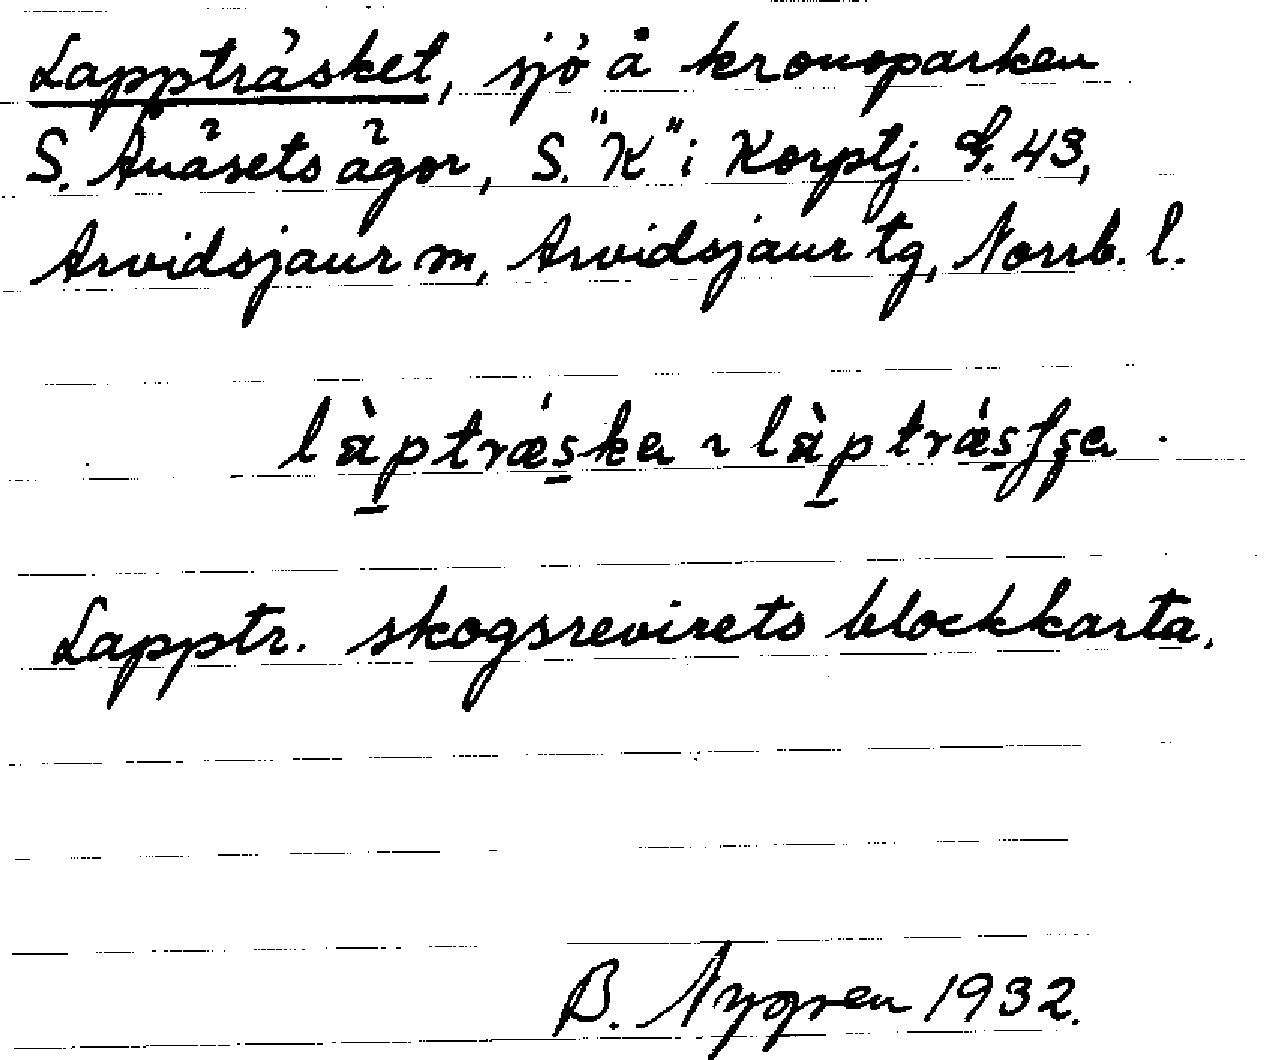 Lappträsket, sjö å kronoparken
S. Avåsets ägor, S. "K" i Korptj. G. 43,
Arvidsjaur sn, Arvidsjaur tg, Norrb. l.
làptrǽske ~ làptrǽsʃʃe.
Lapptr. skogsrevirets blockkarta.
B. Nygren 1932.